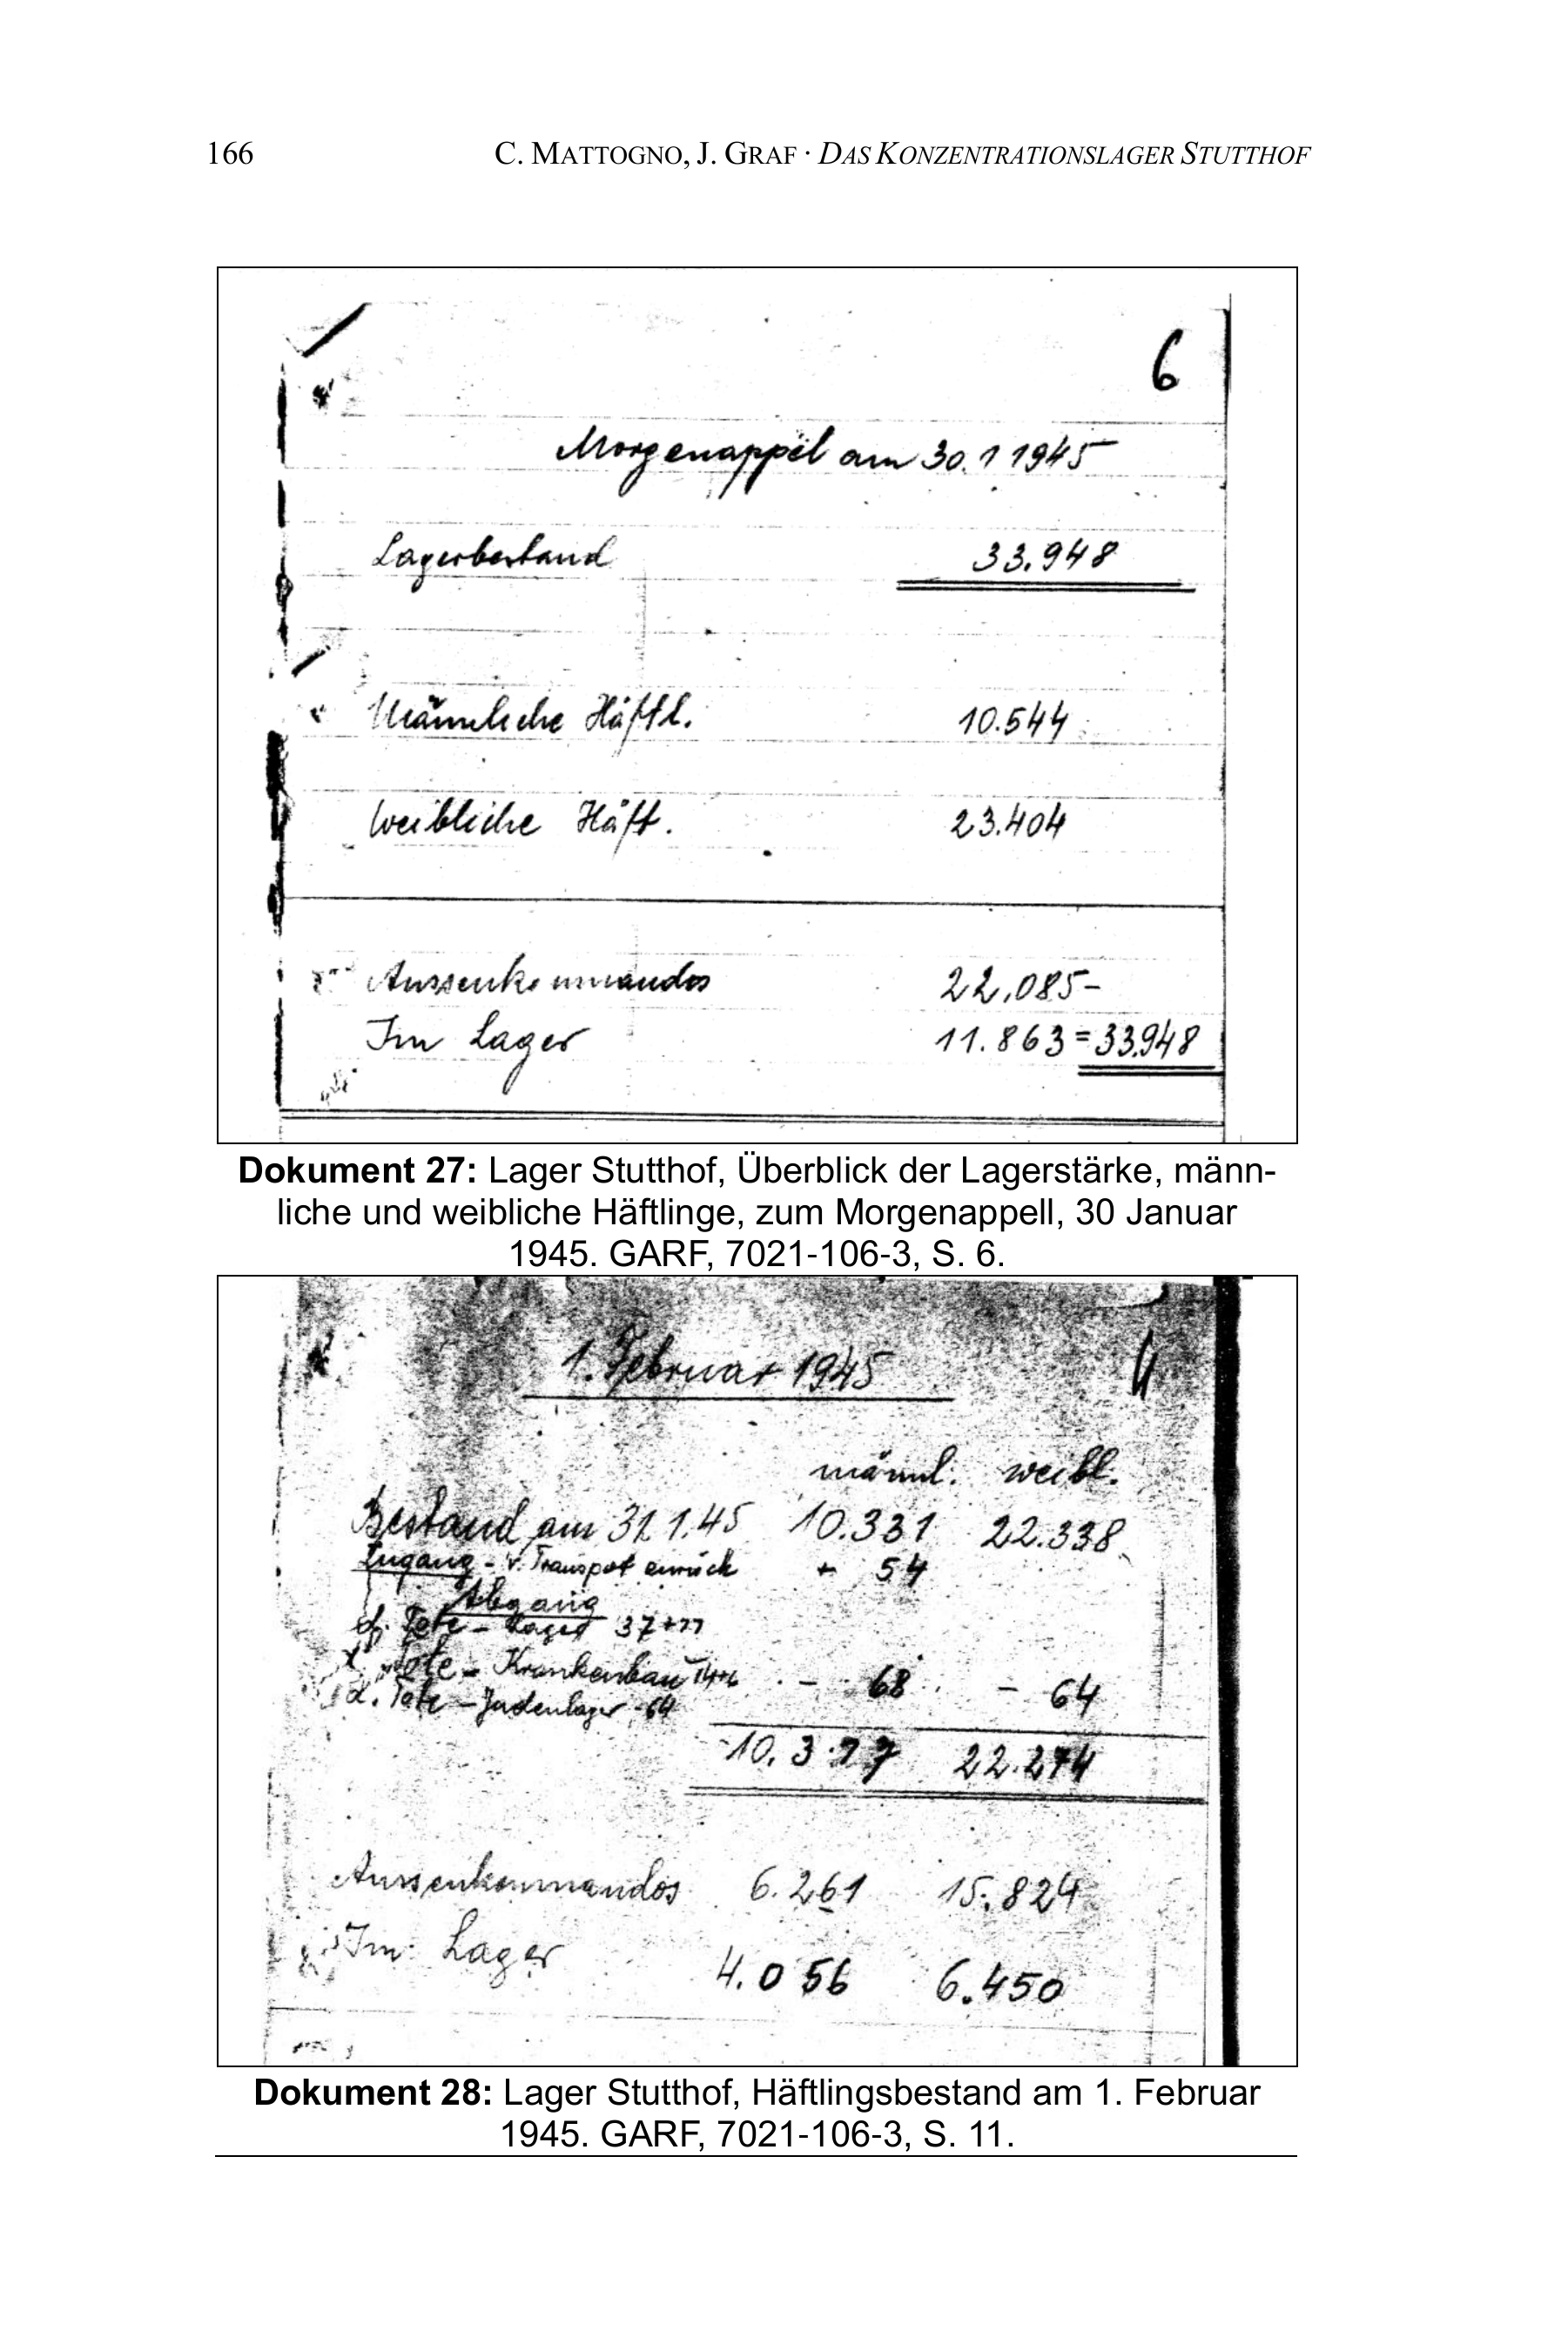 166 C. MATTOGNO, J. GRAF · DAS KONZENTRATIONSLAGER STUTTHOF
6
Morgenappèl am 30.1 1945
Lagerbestand 33.948
Männliche Häftl. 10.544
Weibliche Häft. 23.404
Aussenkommandos 22.085-
Im Lager 11.863=33.948
Dokument 27: Lager Stutthof, Überblick der Lagerstärke, männ-
liche und weibliche Häftlinge, zum Morgenappell, 30 Januar
1945. GARF, 7021-106-3, S. 6.
1. Februar 1945
männl. weibl.
Bestand am 31.1.45 10.331 22.338
Zugang - v. Transport zurück + 54
Abgang
Tote - Lager 37+
Tote - Krankenbau - 68 - 64
d. Tote - Judenlager - 64
10.3 22.274
Aussenkommandos 6.261 15.824
Im Lager 4.056 6.450
Dokument 28: Lager Stutthof, Häftlingsbestand am 1. Februar
1945. GARF, 7021-106-3, S. 11.